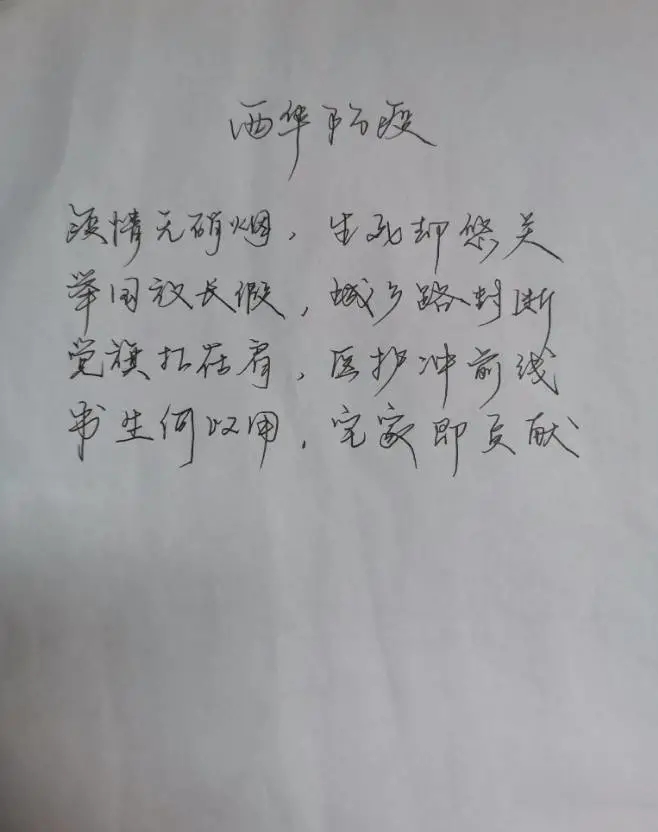 西华防疫
疫情无硝烟，生死却悠关
举国放长假，城乡路封断
党旗扛在肩，医护冲前线
书生何以用，宅家即贡献